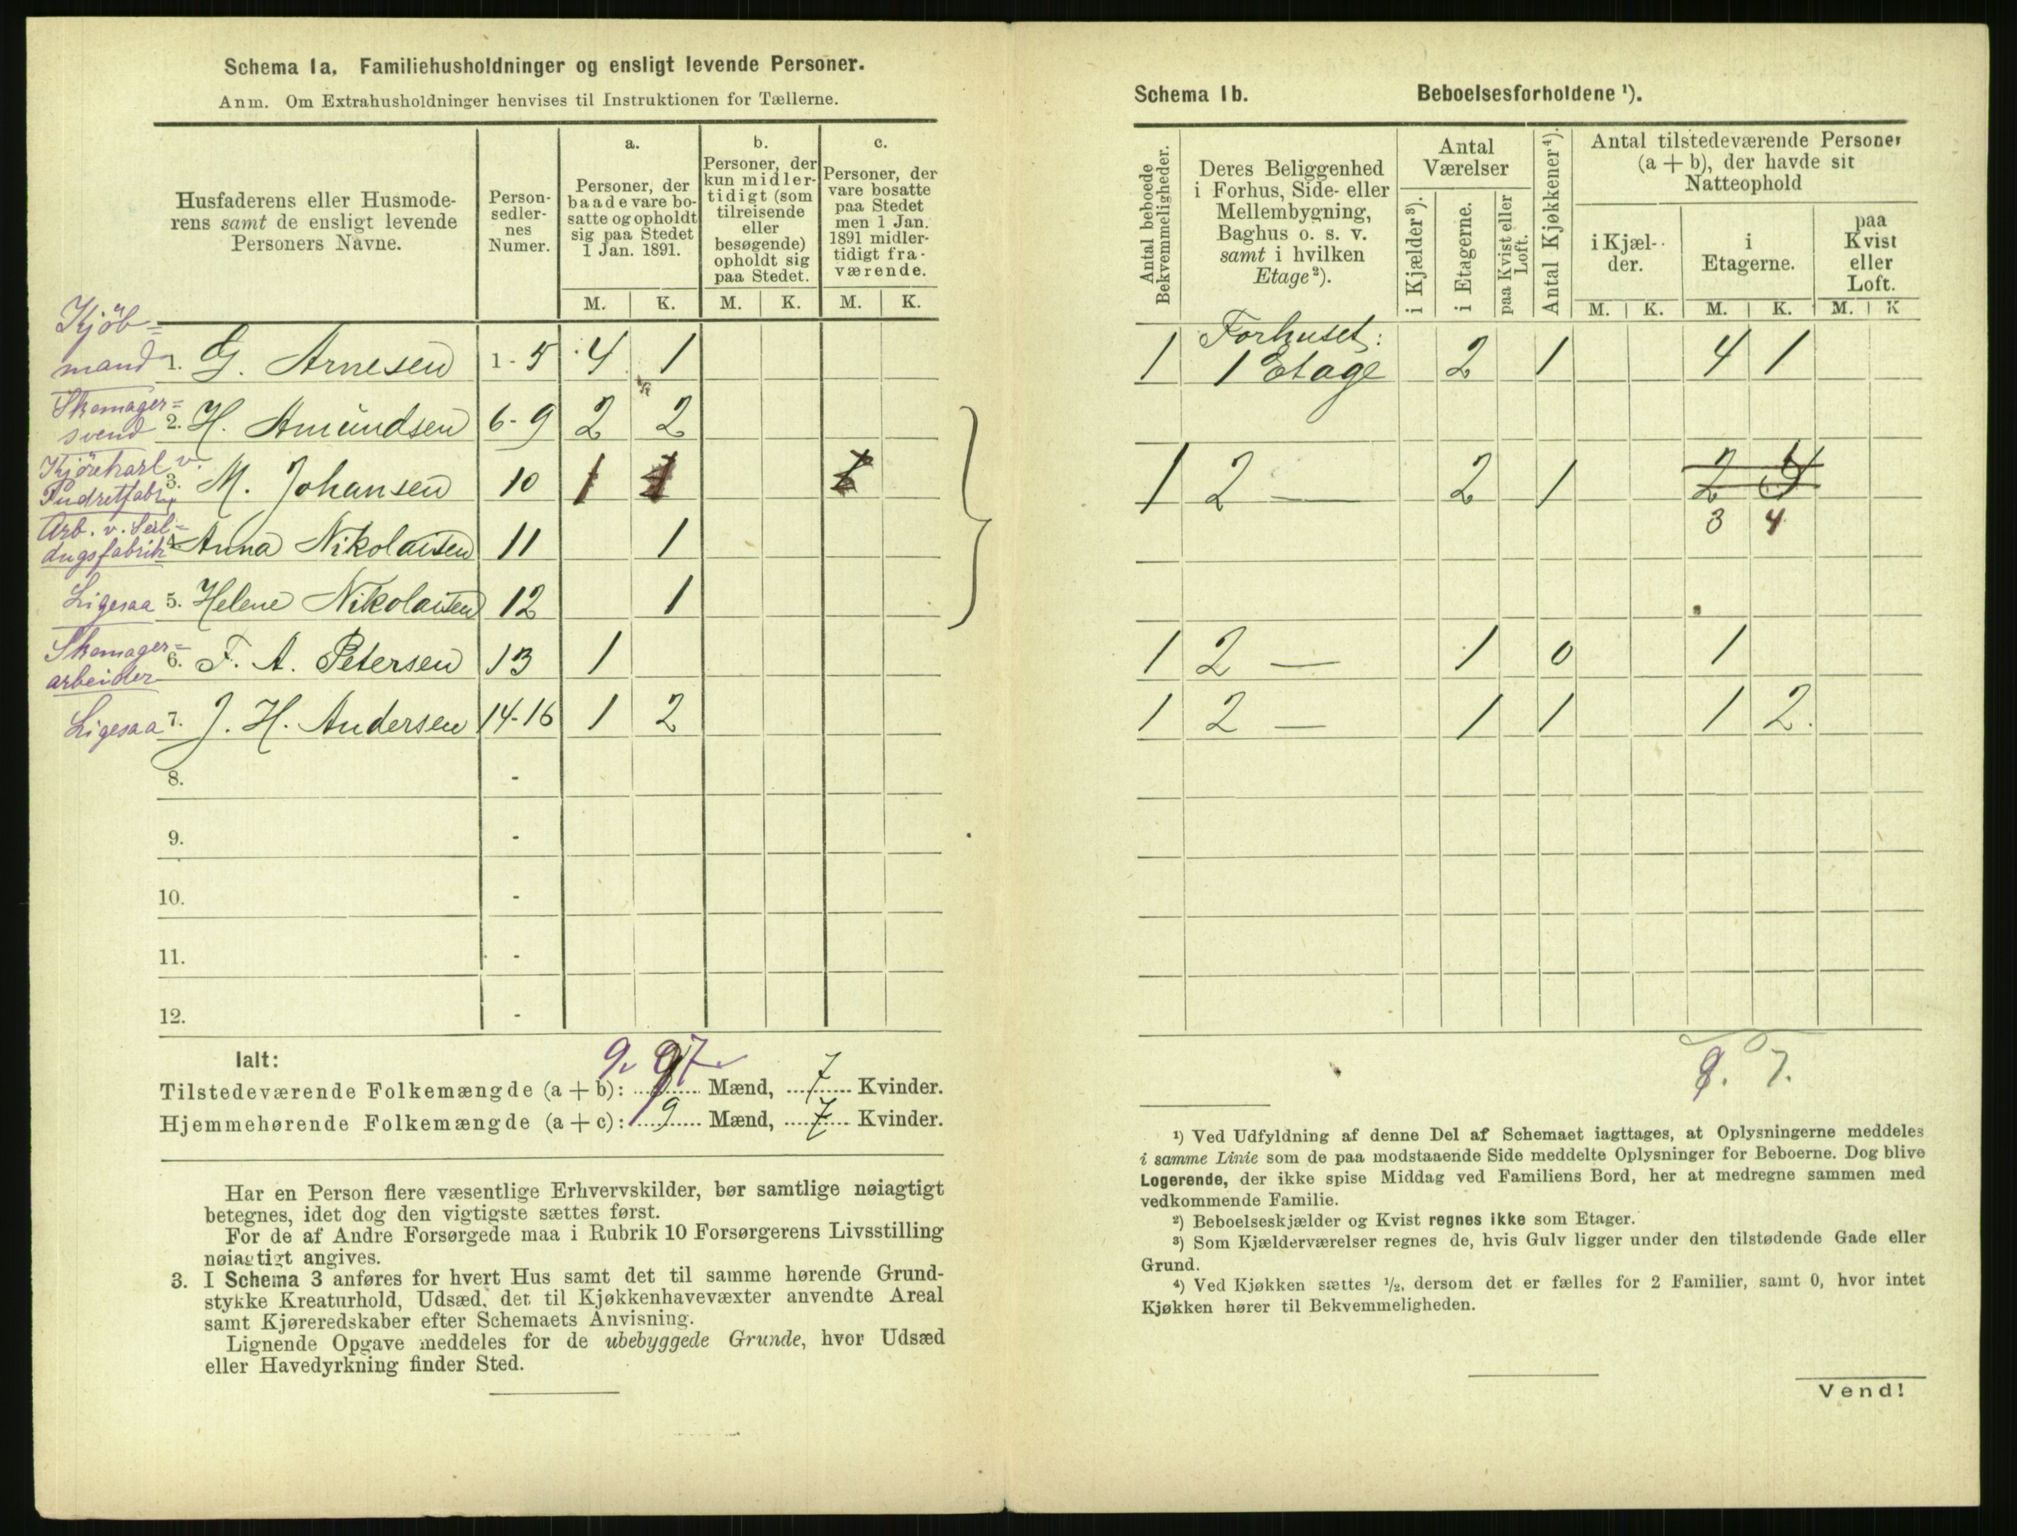 Schema 1a. Familiehusholdninger og ensligt levende Personer.
Anm. Om Extrahusholdninger henvises til Instruktionen for Tællerne.
Husfaderens eller Husmode-
rens samt de ensligt levende
Personers Navne.
Person-
sedler-
nes
Numer.
a.
Personer, der
baade vare bo-
satte og opholdt
sig paa Stedet
1 Jan. 1891.
b.
Personer, der
kun midler-
tidigt (som
tilreisende
eller
besøgende)
opholdt sig
paa Stedet.
c.
Personer, der
vare bosatte
paa Stedet
men 1 Jan.
1891 midler-
tidigt fra-
værende.
M. K. M. K. M. K.
Kjöb=
mand 1. G. Arnesen 1-5 4 1
Skomager=
svend 2. H. Amundsen 6-9 2 2
Kjörekarl v.
Pudretfabr. 3. M. Johansen 10 1
Arb. v. Seil=
dugsfabrik 4. Anna Nikolaisen 11 1
Ligesaa 5. Helene Nikolaisen 12 1
Skomager=
arbeider 6. F. A. Petersen 13 1
Ligesaa 7. J. H. Andersen 14-16 1 2
8. -
9. -
10. -
11. -
12. -
Ialt:
9. 7
Tilstedeværende Folkemængde (a + b): 9 Mænd, 7 Kvinder.
Hjemmehørende Folkemængde (a + c): 9 Mænd, 7 Kvinder.
Har en Person flere væsentlige Erhvervskilder, bør samtlige nøiagtigt
betegnes, idet dog den vigtigste sættes først.
For de af Andre Forsørgede maa i Rubrik 10 Forsørgerens Livsstilling
nøiagtigt angives.
3. I Schema 3 anføres for hvert Hus samt det til samme hørende Grund-
stykke Kreaturhold, Udsæd, det til Kjøkkenhavevæxter anvendte Areal
samt Kjøreredskaber efter Schemaets Anvisning.
Lignende Opgave meddeles for de ubebyggede Grunde, hvor Udsæd
eller Havedyrkning finder Sted.
Schema 1b. Beboelsesforholdene ¹).
Antal beboede
Bekvemmeligheder.
Deres Beliggenhed
i Forhus, Side- eller
Mellembygning,
Baghus o. s. v.
samt i hvilken
Etage²).
Antal
Værelser
i Kjælder³).
i Etagerne.
paa Kvist eller
Loft.
Antal Kjøkkener⁴).
Antal tilstedeværende Personer
(a + b), der havde sit
Natteophold
i Kjæl-
der.
i
Etagerne.
paa
Kvist
eller
Loft.
M. K. M. K. M. K
Forhuset:
1 1 Etage 2 1 4 1
1 2 — 2 1 2 4
3 4
1 2 — 1 0 1
1 2 — 1 1 1 2.
9. 7.
¹) Ved Udfyldning af denne Del af Schemaet iagttages, at Oplysningerne meddeles
i samme Linie som de paa modstaaende Side meddelte Oplysninger for Beboerne. Dog blive
Logerende, der ikke spise Middag ved Familiens Bord, her at medregne sammen med
vedkommende Familie.
²) Beboelseskjælder og Kvist regnes ikke som Etager.
³) Som Kjælderværelser regnes de, hvis Gulv ligger under den tilstødende Gade eller
Grund.
⁴) Ved Kjøkken sættes ¹/₂, dersom det er fælles for 2 Familier, samt 0, hvor intet
Kjøkken hører til Bekvemmeligheden.
Vend!